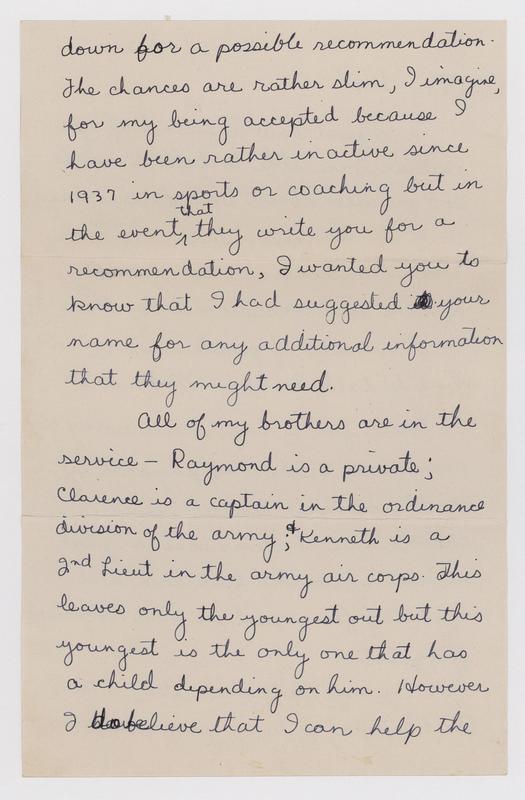 down for a possible recommendation.
The chances are rather slim, I imagine,
for my being accepted because I
have been rather inactive since
1937 in sports or coaching but in
the event that they write you for a
recommendation, I wanted you to
know that I had suggested your
name for any additional information
that they might need.
All of my brothers are in the
service — Raymond is a private;
Clarence is a captain in the ordinance
division of the army; & Kenneth is a
2nd Lieut in the army air corps. This
leaves only the youngest out but this
youngest is the only one that has
a child depending on him. However
I believe that I can help the